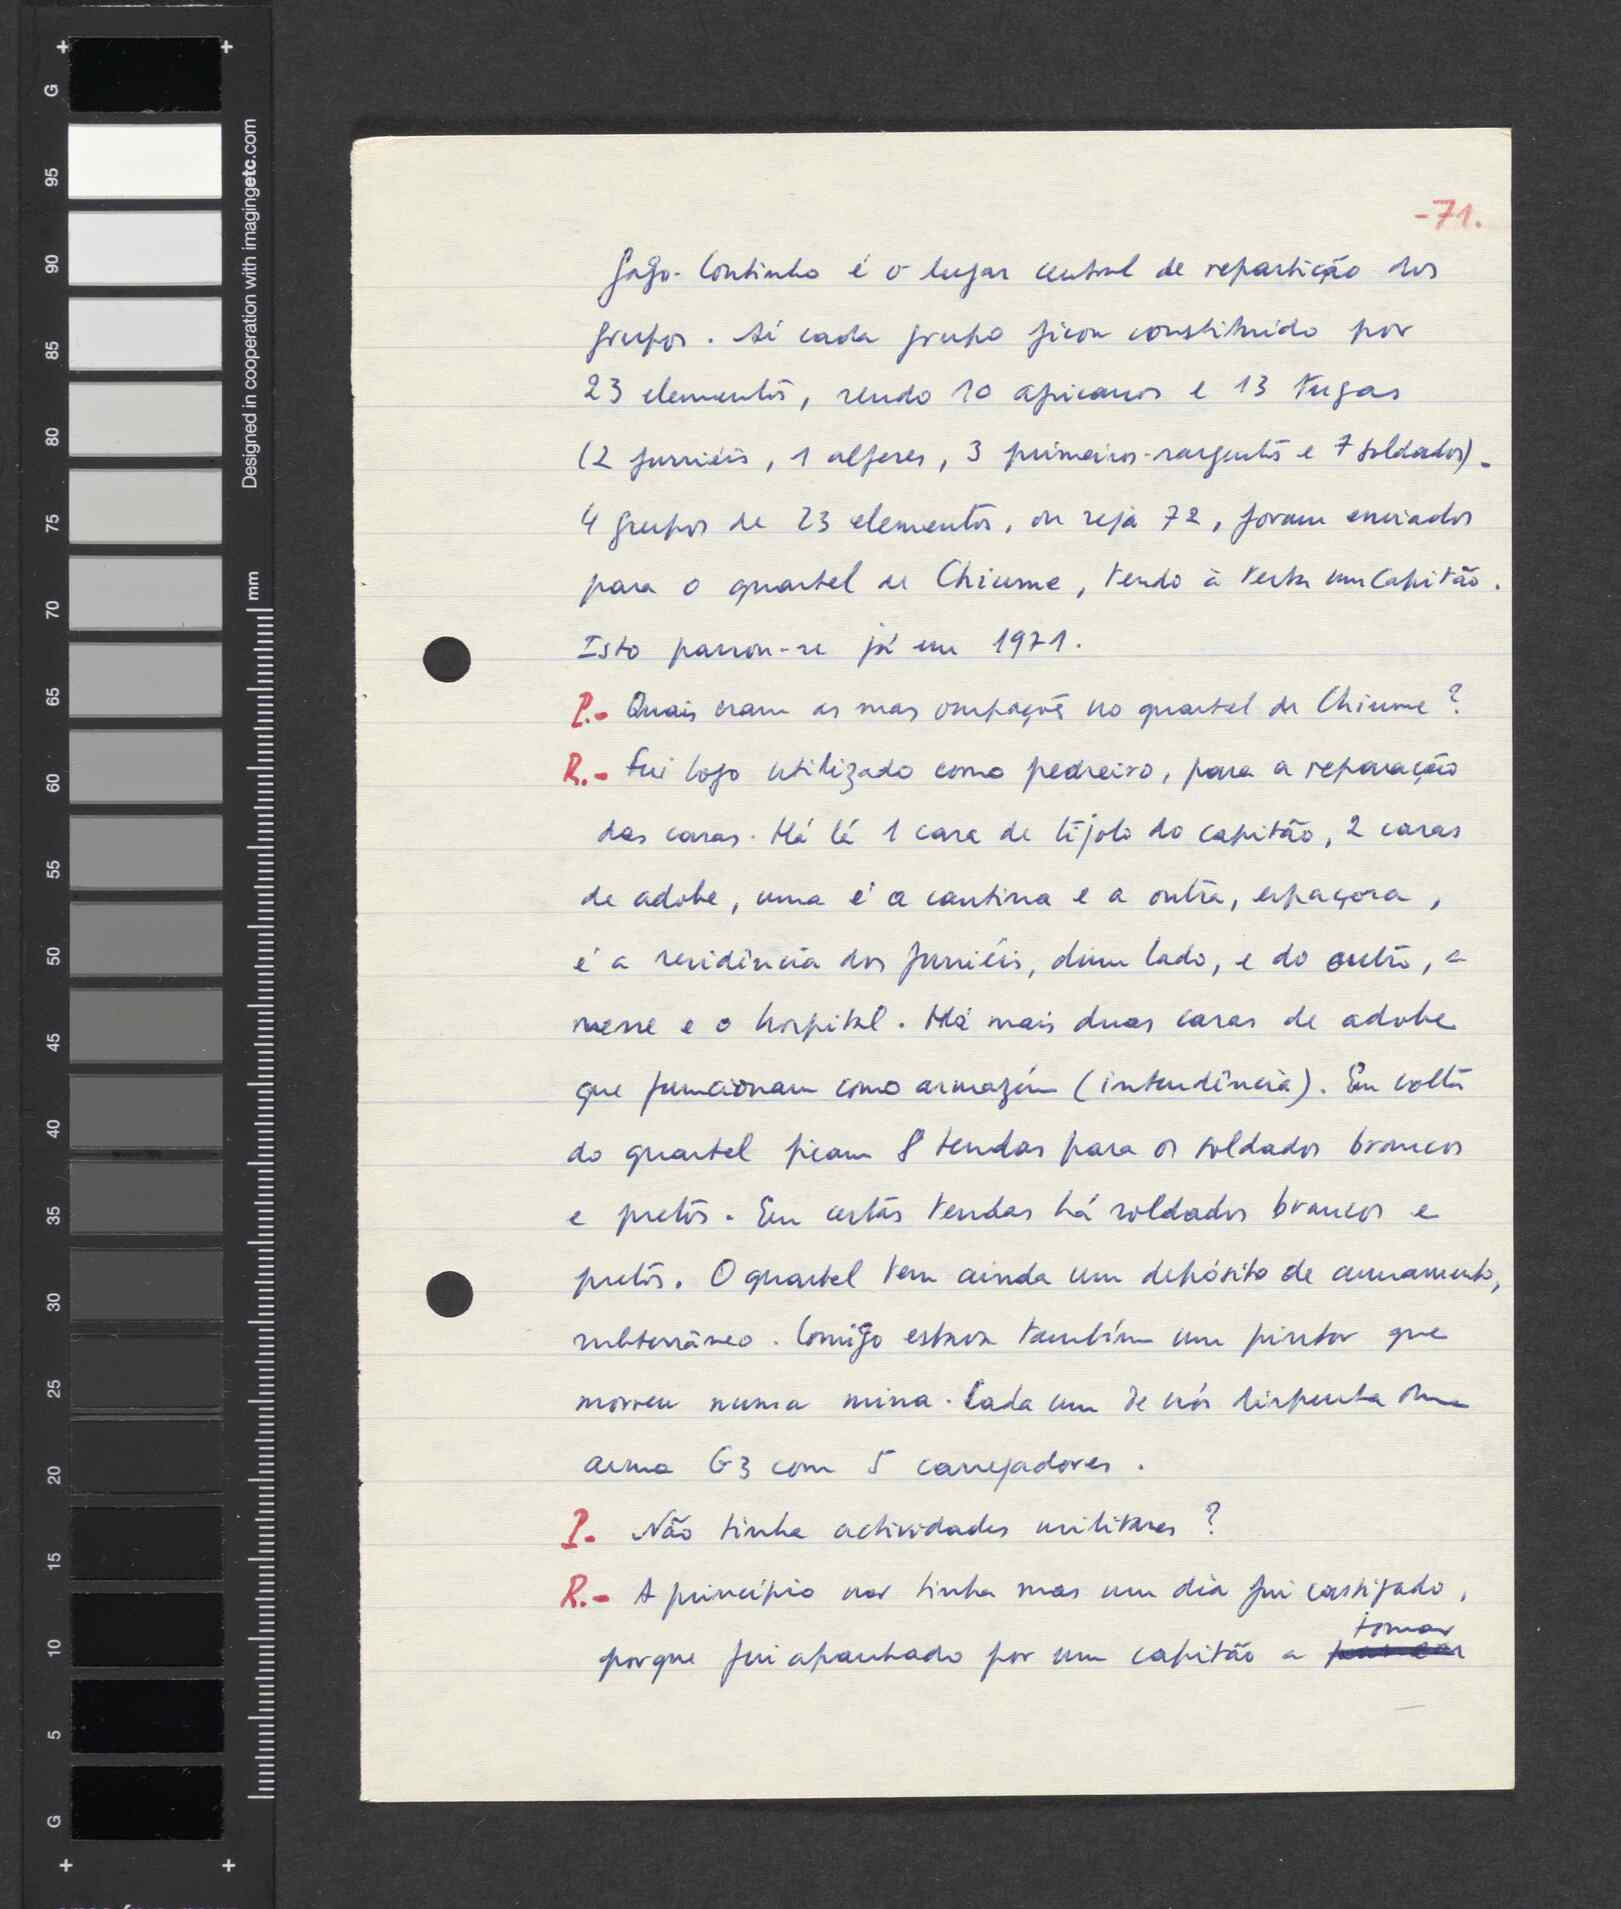 -71.
Gago-Coutinho é o lugar central de repartição dos
grupos. Aí cada grupo ficou constituído por
23 elementos, sendo 10 africanos e 13 tugas
(2 furriéis, 1 alferes, 3 primeiros-sargentos e 7 soldados).
4 grupos de 23 elementos, ou seja 72, foram enviados
para o quartel de Chiume, tendo à testa um Capitão.
Isto passou-se já em 1971.
P.- Quais eram as suas ocupações no quartel de Chiume?
R.- Fui logo utilizado como pedreiro, para a reparação
das casas. Há lá 1 casa de tijolo do capitão, 2 casas
de adobe, uma é a cantina e a outra, espaçosa,
é a residência dos furriéis, dum lado, e do outro, a
messe e o hospital. Há mais duas casas de adobe
que funcionam como armazém (intendência). Em volta
do quartel ficam 8 tendas para os soldados brancos
e pretos. Em certas tendas há soldados brancos e
pretos. O quartel tem ainda um depósito de armamento,
subterrâneo. Comigo estava também um pintor que
morreu numa mina. Cada um de nós dispunha duma
arma G3 com 5 carregadores.
P. Não tinha actividades militares?
R.- A princípio não tinha mas um dia fui castigado,
porque fui apanhado por um capitão a tomar
95
90
85
80
75
70
65
60
55
50
45
40
35
30
25
20
15
10
5
G
G
mm
Designed in cooperation with imagingetc.com